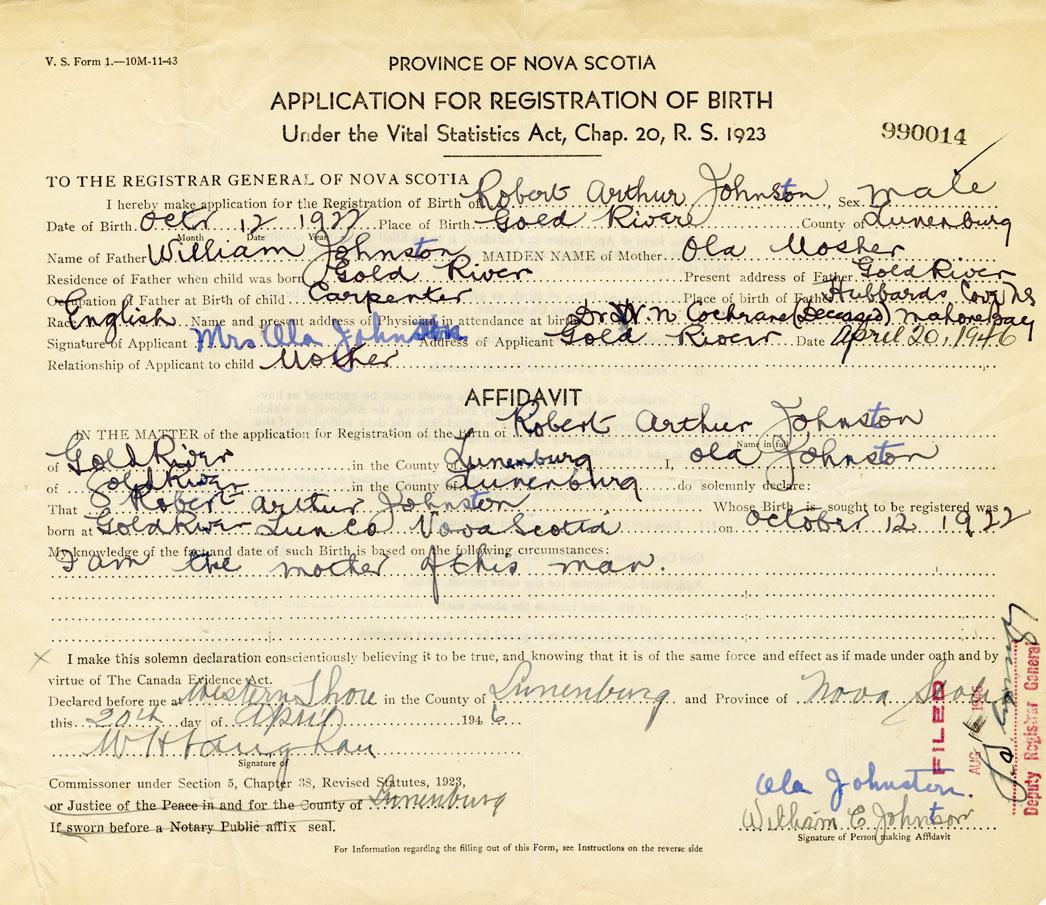 V. S. Form 1.—10M-11-43
PROVINCE OF NOVA SCOTIA
APPLICATION FOR REGISTRATION OF BIRTH
Under the Vital Statistics Act, Chap. 20, R. S. 1923
990014
TO THE REGISTRAR GENERAL OF NOVA SCOTIA
I hereby make application for the Registration of Birth of Robert Arthur Johnston, Sex male
Date of Birth Octr 12 1922 Place of Birth Gold River County of Lunenburg
Month Date Year
Name of Father William Johnston MAIDEN NAME of Mother Ola Mosher
Residence of Father when child was born Gold River Present address of Father Gold River
Occupation of Father at Birth of child Carpenter Place of birth of Father Hubbards Cove NS
Race English Name and present address of Physician in attendance at birth Dr W N Cochrane (Deceased) Mahone Bay
Signature of Applicant Mrs Ola Johnston Address of Applicant Gold River Date April 20, 1946
Relationship of Applicant to child Mother
AFFIDAVIT
IN THE MATTER of the application for Registration of the Birth of Robert Arthur Johnston
Name in full
of Gold River in the County of Lunenburg I, Ola Johnston
of Gold River in the County of Lunenburg do solemnly declare:
That Robert Arthur Johnston Whose Birth is sought to be registered was
born at Gold River Lun Co Nova Scotia on October 12 1922
My knowledge of the fact and date of such Birth is based on the following circumstances:
I am the mother of this man.
I make this solemn declaration conscientiously believing it to be true, and knowing that it is of the same force and effect as if made under oath and by
virtue of The Canada Evidence Act.
Declared before me at Western Shore in the County of Lunenburg and Province of Nova Scotia
this 20th day of April 1946
W H Vaughan
Signature of
Commissoner under Section 5, Chapter 38, Revised Statutes, 1923,
or Justice of the Peace in and for the County of Lunenburg
If sworn before a Notary Public affix seal.
Ola Johnston.
William E Johnston
Signature of Person making Affidavit
For Information regarding the filling out of this Form, see Instructions on the reverse side
FILED
AUG 1946
Deputy Registrar General